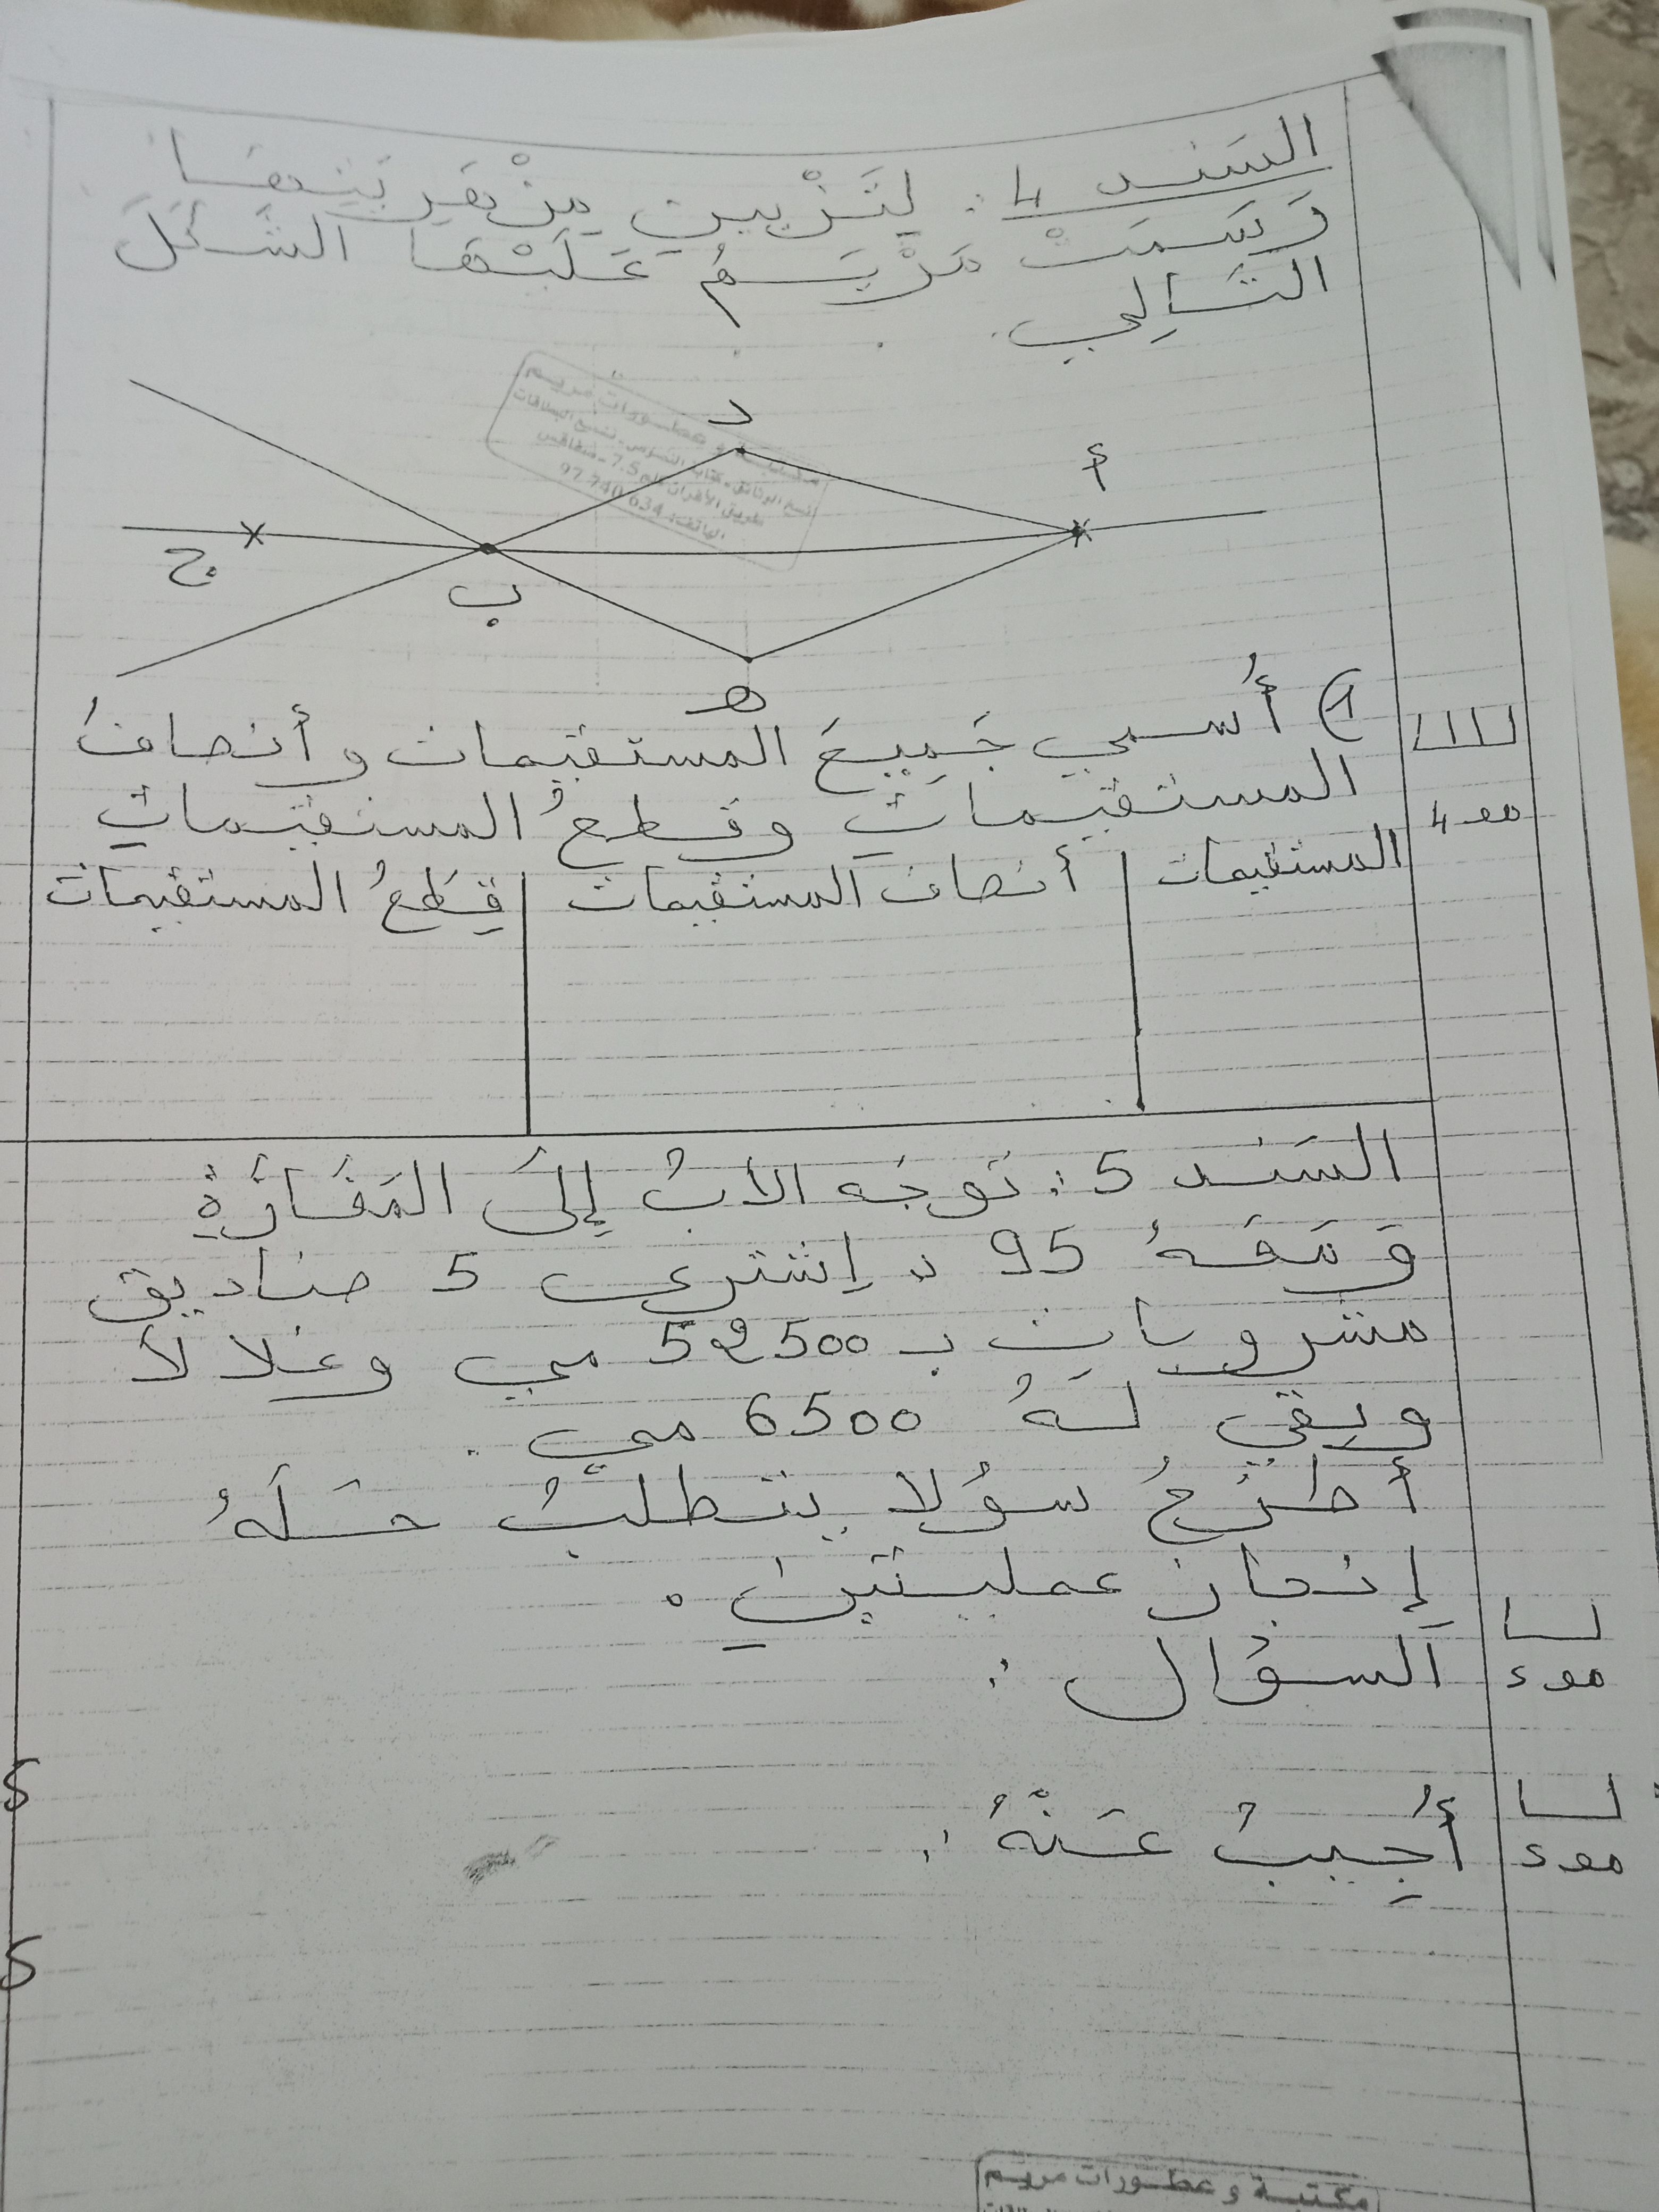 السَند 4 : لِتَزْيِينِ مِزْهَرِيَّتِهَا
رَسَمَتْ مَرْيَمُ عَلَيْهَا الشَكْلَ
التَالِي.
مكتبة و عطورات مريم
نسخ الوثائق - كتابة النصوص - نسخ البطاقات
طريق الأفران كلم 7.5 - صفاقس
الهاتف: 97 740 634
د
أ
ج
ب
هـ
1) أُسمي جَمِيعَ المستقيمات و أنصافُ
المستقيماتِ وقطعُ المستقيماتِ
مع 4
المستقيمات | أنصاف المستقيمات | قِطَعُ المستقيمات
السَند 5 : تَوجَه الأبُ إلَى المَغَازَةِ
وَمَعَهُ 95 د إشترى 5 صناديق
مشروباتٍ بـ 52500 مي وغلالاً
وبقي لهُ 6500 مي .
أطرَحُ سؤلا يتطلبُ حَلَهُ
إنجاز عمليتينِ .
السؤال :
5
أُجِيبُ عَنْهُ :
5
مكتبة و عطورات مريم